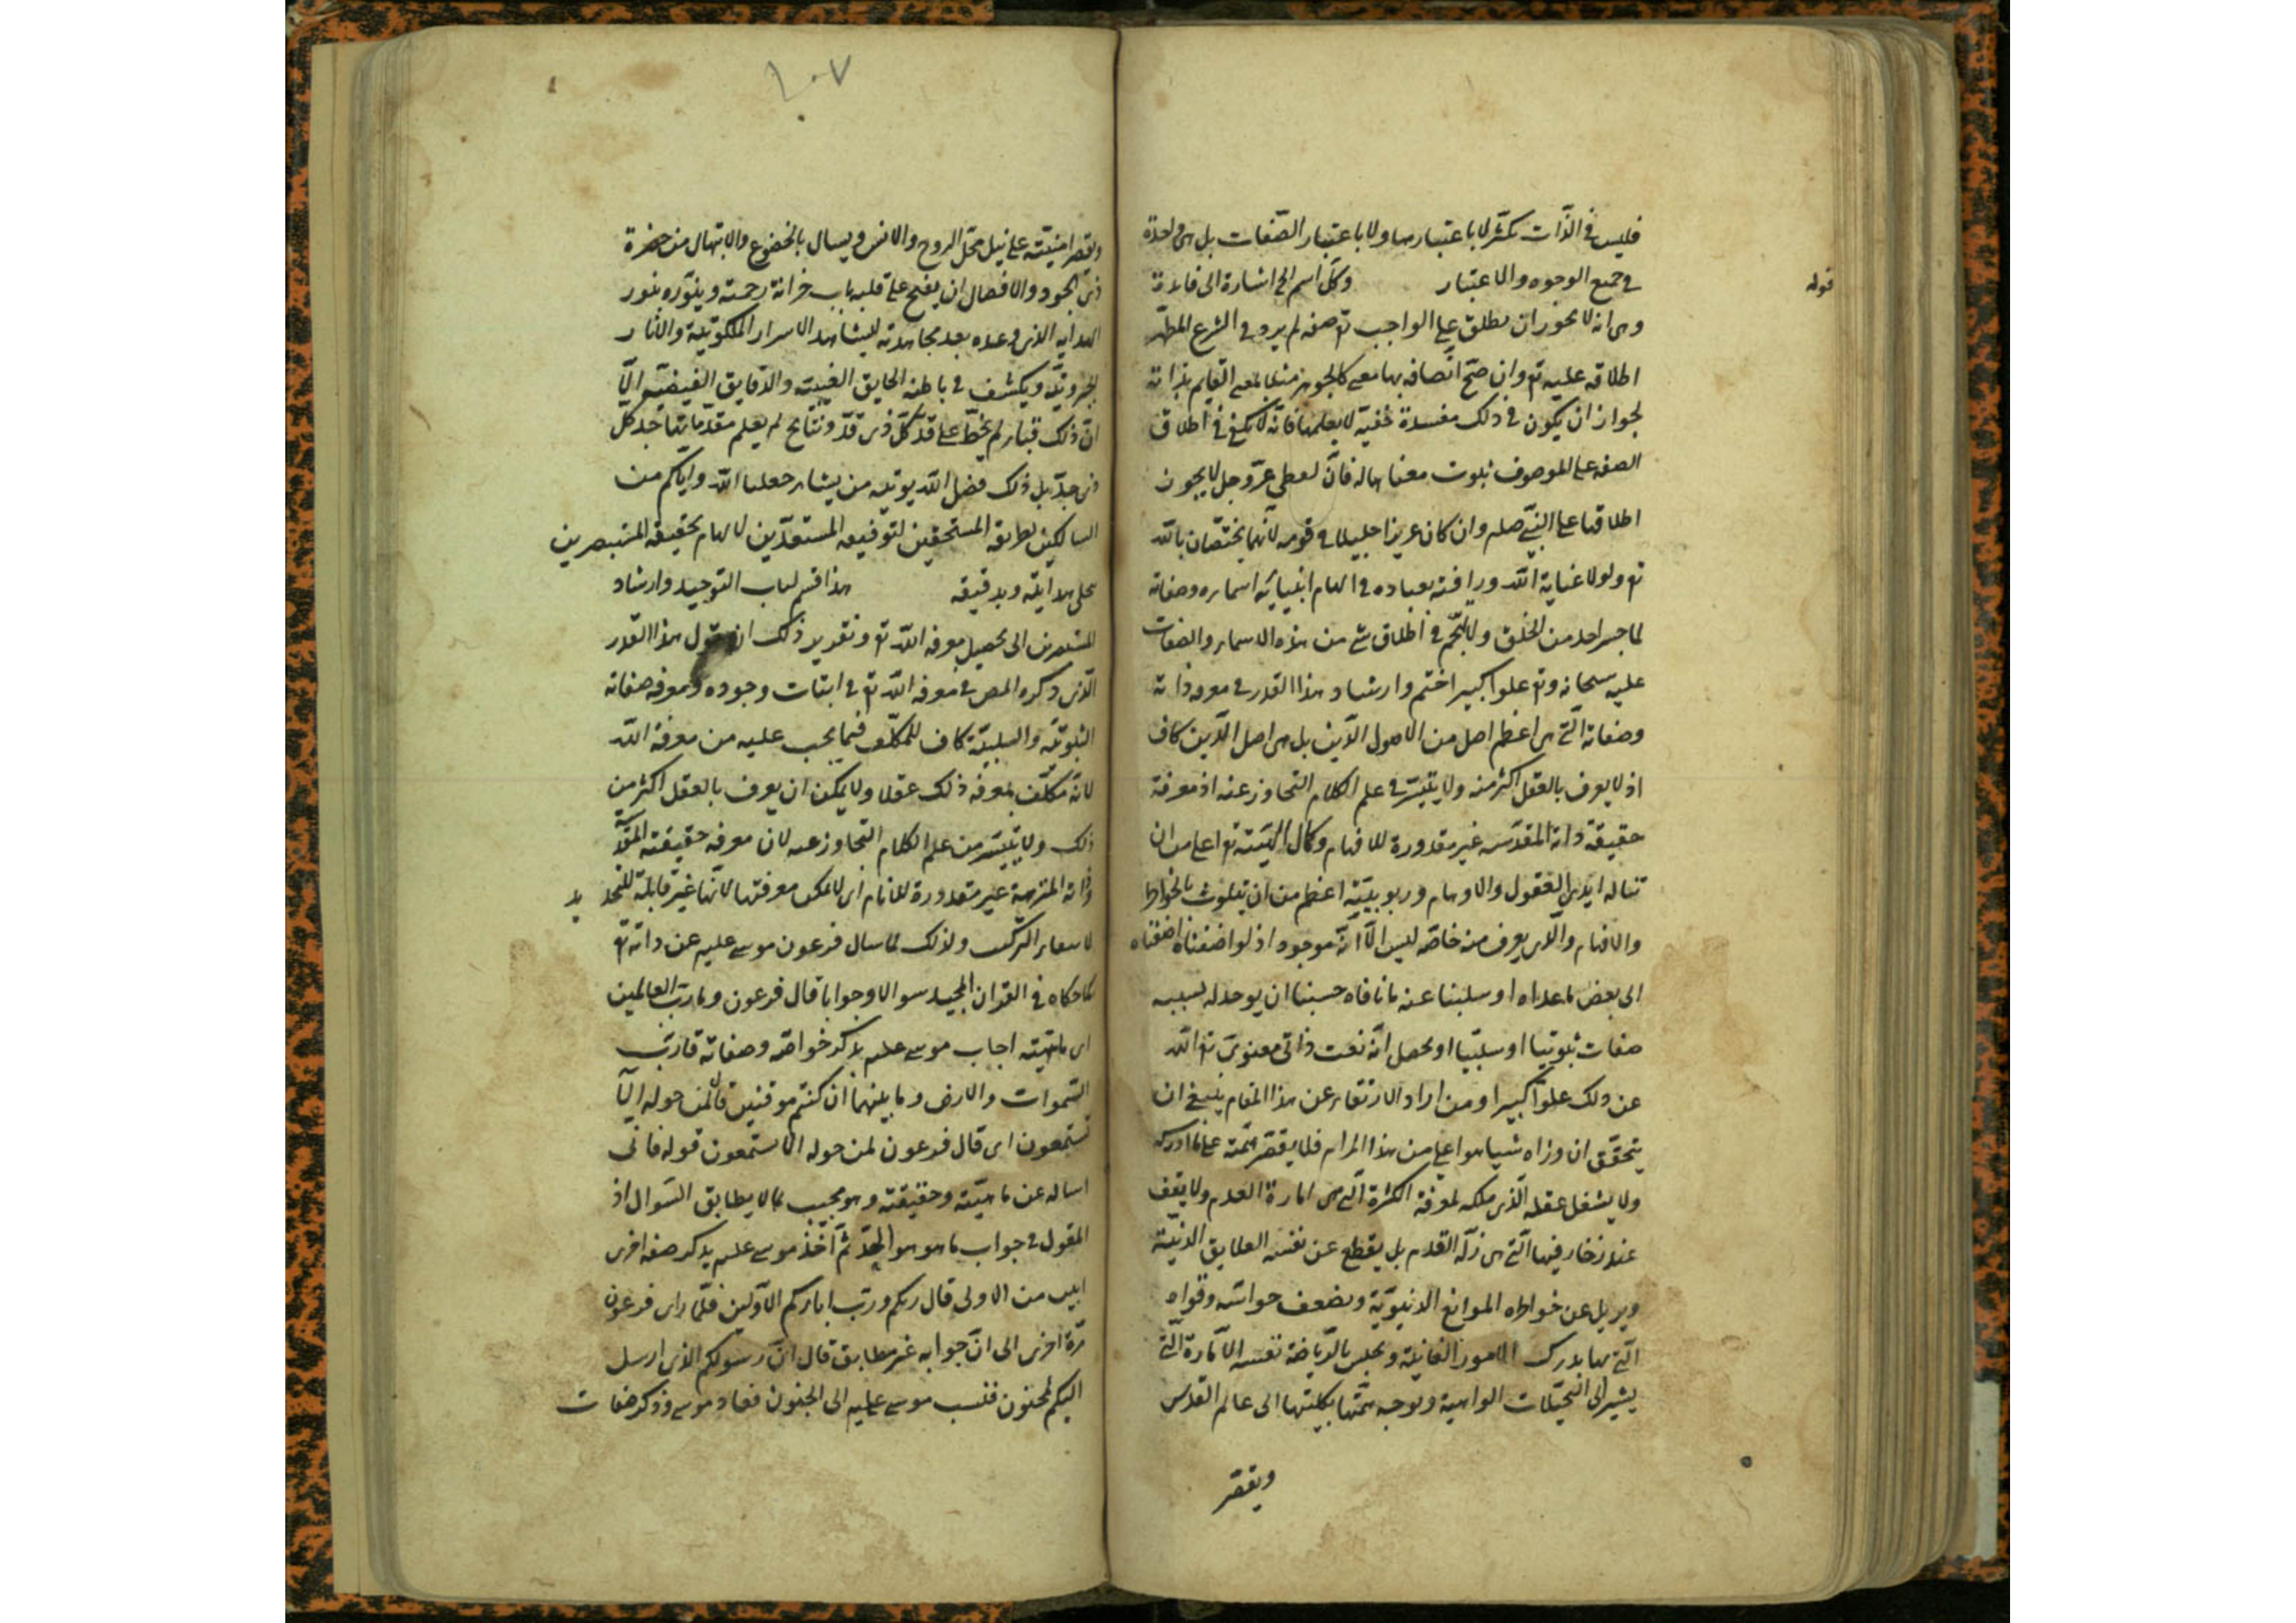 فليس في الذّات تكثّر لا باعتبارها ولا باعتبار الصّفات بل هي واحدة
في جميع الوجوه والاعتبار وكلّ اسم الخ اشارة الى فائدة
قوله
وهى انه لا يجوز ان يطلق على الواجب تع صفه لم يرد في الشرع المطهّر
اطلاقه عليه تع وان صحّ اتّصافه بها معنى كالجوهر مثلا بمعنى القايم بذاته
لجواز ان يكون في ذلك مفسدة خفيّة لا يعلمها فانّه لا يكفى في اطلاق
الصفه على الموصوف ثبوت معناها له فانّ لفظى عزّ وجل لا يجوز
اطلاقها على النبيّ صلم وان كان عزيزا جليلا في قومه لانّهما يختصّان بالله
تع ولولا عناية الله ورافته بعباده في الهام انبيائه اسماءه وصفاته
لما جسر احد من الخلق ولا تهجّم في اطلاق شى من هذه الاسماء والصفات
عليه سبحانه وتع علوا كبيرا ختم وارشاد هذا القدر في معرفه ذاته
وصفاته الّتى هى اعظم اصل من الاصول الدّين بل هى اصل الدّين كاف
اذ لا يعرف بالعقل اكثر منه ولا يتيسّر في علم الكلام التجاوز عنه اذ معرفة
حقيقة ذاته المقدّسه غير مقدورة للافهام وكمال الهيّته تع اعلى من ان
تناله ايدى العقول والاوهام وربوبيّته اعظم من ان يتلوث بالخواطر
والافهام والّذى يعرف منه خاصّه ليس الّا انّه موجود اذ لو اضفناه اضفناه
الى بعض ما عداه او سلبنا عنه ما نافاه حسبنا ان يوجد له بسببه
صفات ثبوتيا او سلبيّا او يحصل انّه نعت ذاتى معنوىّ تع الله
عن ذلك علوّا كبيرا ومن اراد الارتقاء عن هذا المقام ينبغى ان
يتحقّق ان وراه شيا هو اعلى من هذا المرام فلا يقصر همّته على ما ادركه
ولا يشغل عقله الّذى ملكه لمعرفة الكثرة الّتى هى امارة العدم ولا يقف
عند زخارفها الّتى هى زلّة القدم بل يقطع عن نفسه العلايق الدنيّة
ويزيل عن خواطره الموانع الدنيويّة ويضعف حواسّه وقواه
الّتى بها يدرك الامور الفانية ويحبس بالرّياضة نفسه الامّارة الّتى
يشير الى التخيّلات الواهية ويوجه همّتها بكليّتها الى عالم القدس
ويقصر
١٠٧
ويقصر امنيّته على نيل محلّ الروح والانس ويسال بالخضوع والابتهال من حضرة
ذى الجود والافضال ان يفتح على قلبه باب خزانة رحمته وينوّره بنور
الهدايه الذى وعده بعد مجاهدته ليشاهد الاسرار الملكوتيّة والاثار
الجبروتيّه ويكشف في باطنه الحقايق الغيبيّه والدّقايق الفيضيّه الّا
انّ ذلك قباء لم يخطّ على قدّ كلّ ذى قدّ ونتايج لم يعلم مقدّماتها جدّ كل
ذى جدّ بل ذلك فضل الله يوتيه من يشاء جعلنا الله واياكم من
السالكين لطريقه المستحقين لتوفيقه المستعدّين لالهام بحقيقه المستبصرين
بتجلى هدايته وبدقيقه هذا قسم لباب التوحيد وارشاد
المستعدين الى تحصيل معرفه الله تع وتقدير ذلك ان نقول هذا القدر
الّذى ذكره المص في معرفه الله تع في اثبات وجوده ومعرفه صفاته
الثبوتيّه والسلبيّة كاف للمكلّف فيما يجب عليه من معرفة الله
لانّه مكلّف بمعرفه ذلك عقلا ولا يمكن ان يعرف بالعقل اكثر من
ذلك ولا يتيسّر من علم الكلام التجاوز عنه لان معرفه حقيقته المقدّسة
وذاته المنزهة غير مقدورة للانام اى لا يمكن معرفتها لانّها غير قابلة للتحديد
لانتفاء التركيب ولذلك لما سال فرعون موسى عليه عن ذاته تع
كما حكاه في القران المجيد سوالا وجوابا قال فرعون وما ربّ العالمين
اى ماهيّته اجاب موسى عليه بذكر خواصّه وصفاته قال ربّ
السّموات والارض وما بينهما ان كنتم موقنين قال لمن حوله الا
تستمعون اى قال فرعون لمن حوله الا تستمعون قوله فانّى
اساله عن ماهيّته وحقيقته وهو مجيب بما لا يطابق السّوال اذ
المقول في جواب ما هو هو الحدّ ثمّ اخذ موسى عليه بذكر صفه اخرى
ابين من الاولى قال ربكم وربّ ابائكم الاوّلين فلمّا راى فرعون
مرّة اخرى الى انّ جوابه غير مطابق قال انّ رسولكم الذى ارسل
اليكم لمجنون فنسب موسى عليه الى الجنون فعاد موسى وذكر صفات